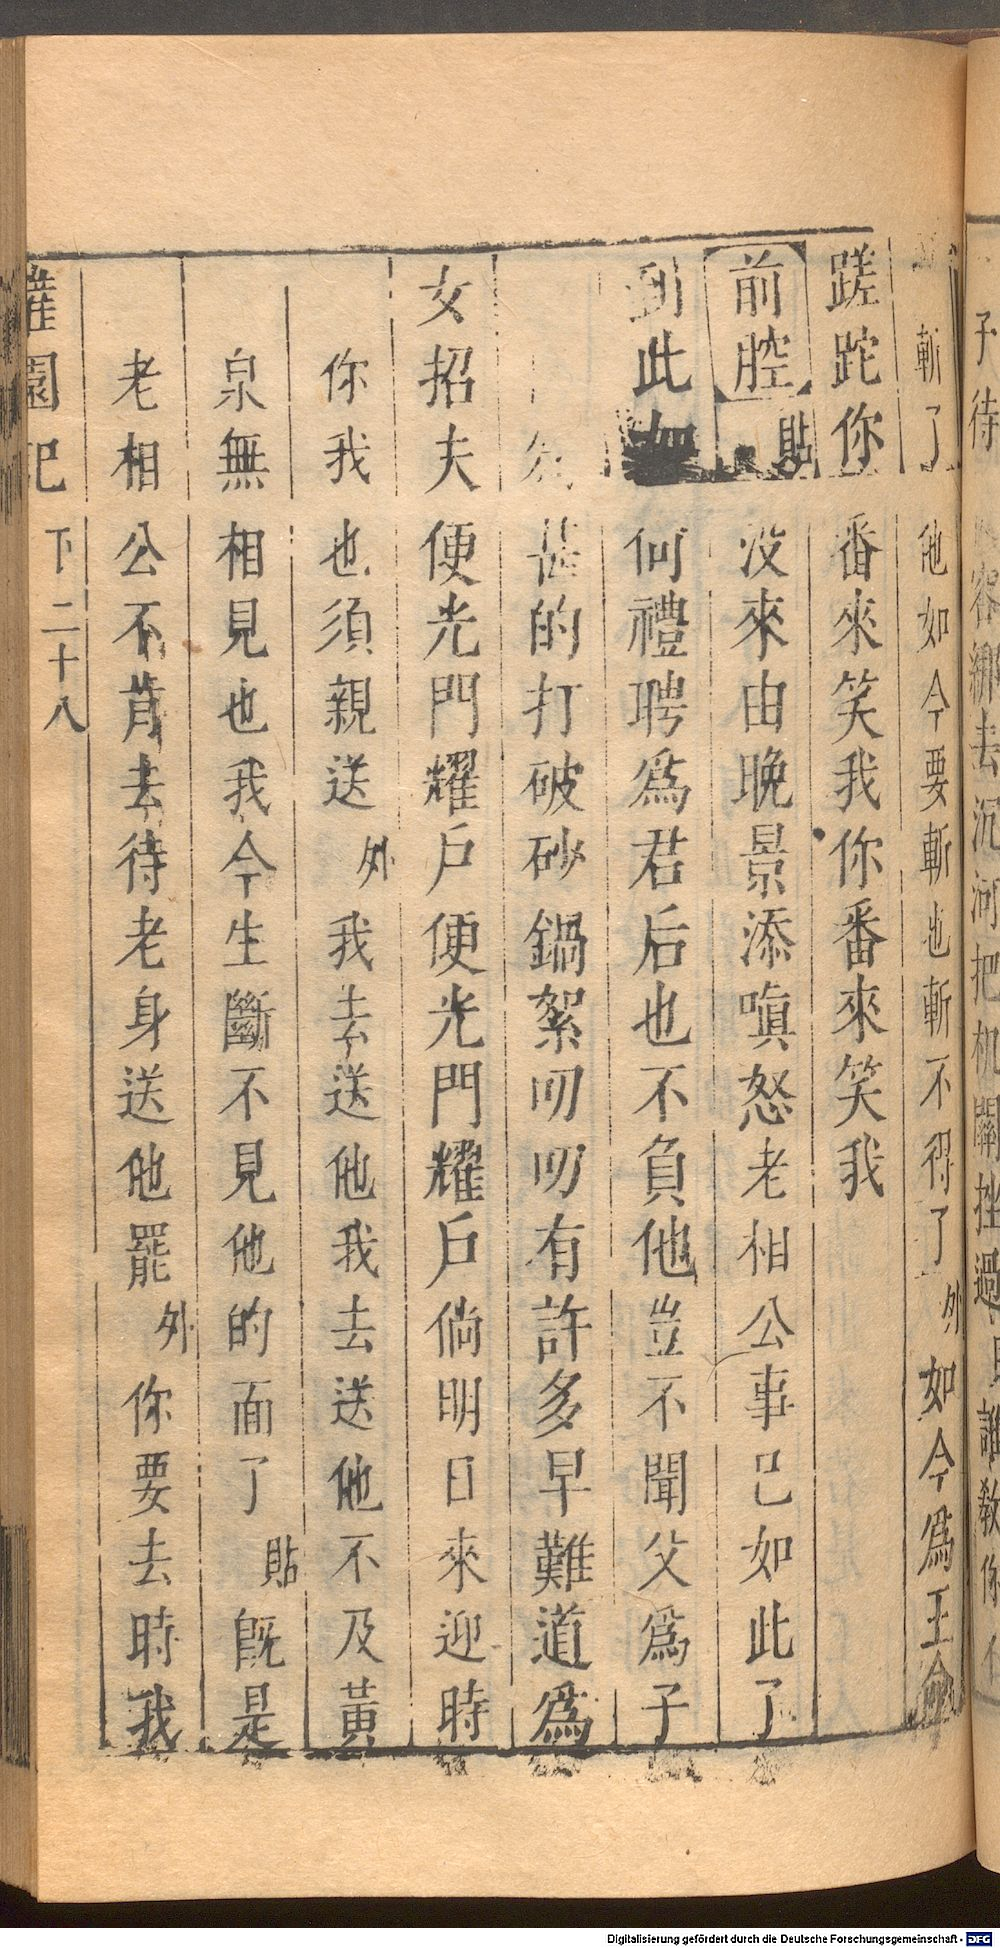 子待 容綁去沉河把机關挫過 誰教你不
斬了他如今要斬也斬不得了外如今為王命
蹉跎你番來笑我你番來笑我
前腔貼没來由晚景添嗔怒老相公事已如此了
到此如何禮聘爲君后也不負他豈不聞父爲子
甚的打破砂鍋絮叨叨有許多早難道爲
女招夫便光門耀戶便光門耀戶倘明日來迎時
你我也須親送外我去送他我去送他不及黃
泉無相見也我今生斷不見他的面了貼既是
老相公不肯去待老身送他罷外你要去時我
灌園記 下 二十八
Digitalisierung gefördert durch die Deutsche Forschungsgemeinschaft - DFG